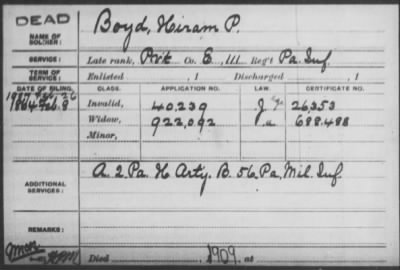 DEAD
NAME OF SOLDIER: Boyd, Hiram P.
SERVICE: Late rank, Pvt Co. E, 111 Reg't Pa. Inf.
TERM OF SERVICE: Enlisted , 1 Discharged , 1
DATE OF FILING. CLASS. APPLICATION NO. LAW. CERTIFICATE NO.
1864 Feb. 8 Invalid, 40,239 26353
Widow, 922,092 688.488
Minor,
ADDITIONAL SERVICES: A. 2. Pa. H Arty. B. 56. Pa. Mil. Inf.
REMARKS:
Died , 1909, at